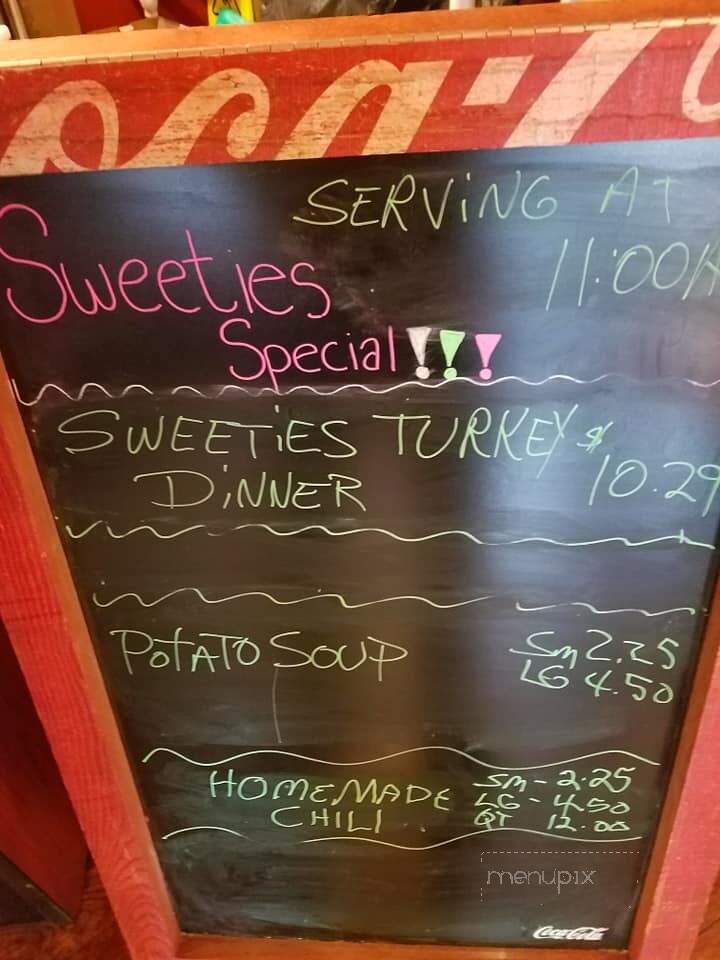 Coca-
SERVING AT
11:00A
Sweeties
Special!!!
SWEETIES TURKEY $
DINNER 10.29
POTATO SOUP Sm 2.25
LG 4.50
HOMEMADE Sm - 2.25
CHILI LG - 4.50
QT 12.00
menupix
Coca-Cola